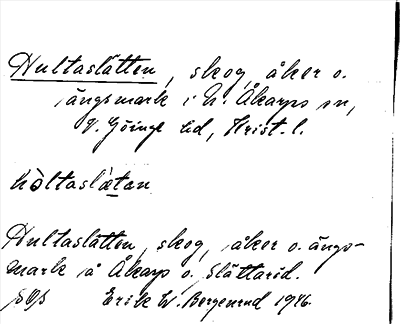 Hultaslätten, skog, åker o.
ängsmark i N. Åkarps sn,
V. Göinge hd, Krist. l.
hòltaslä̀tan
Hultaslätten, skog, åker o. ängs-
mark å Åkarp o. Slättarid.
Erik W. Bergenrud 1926.